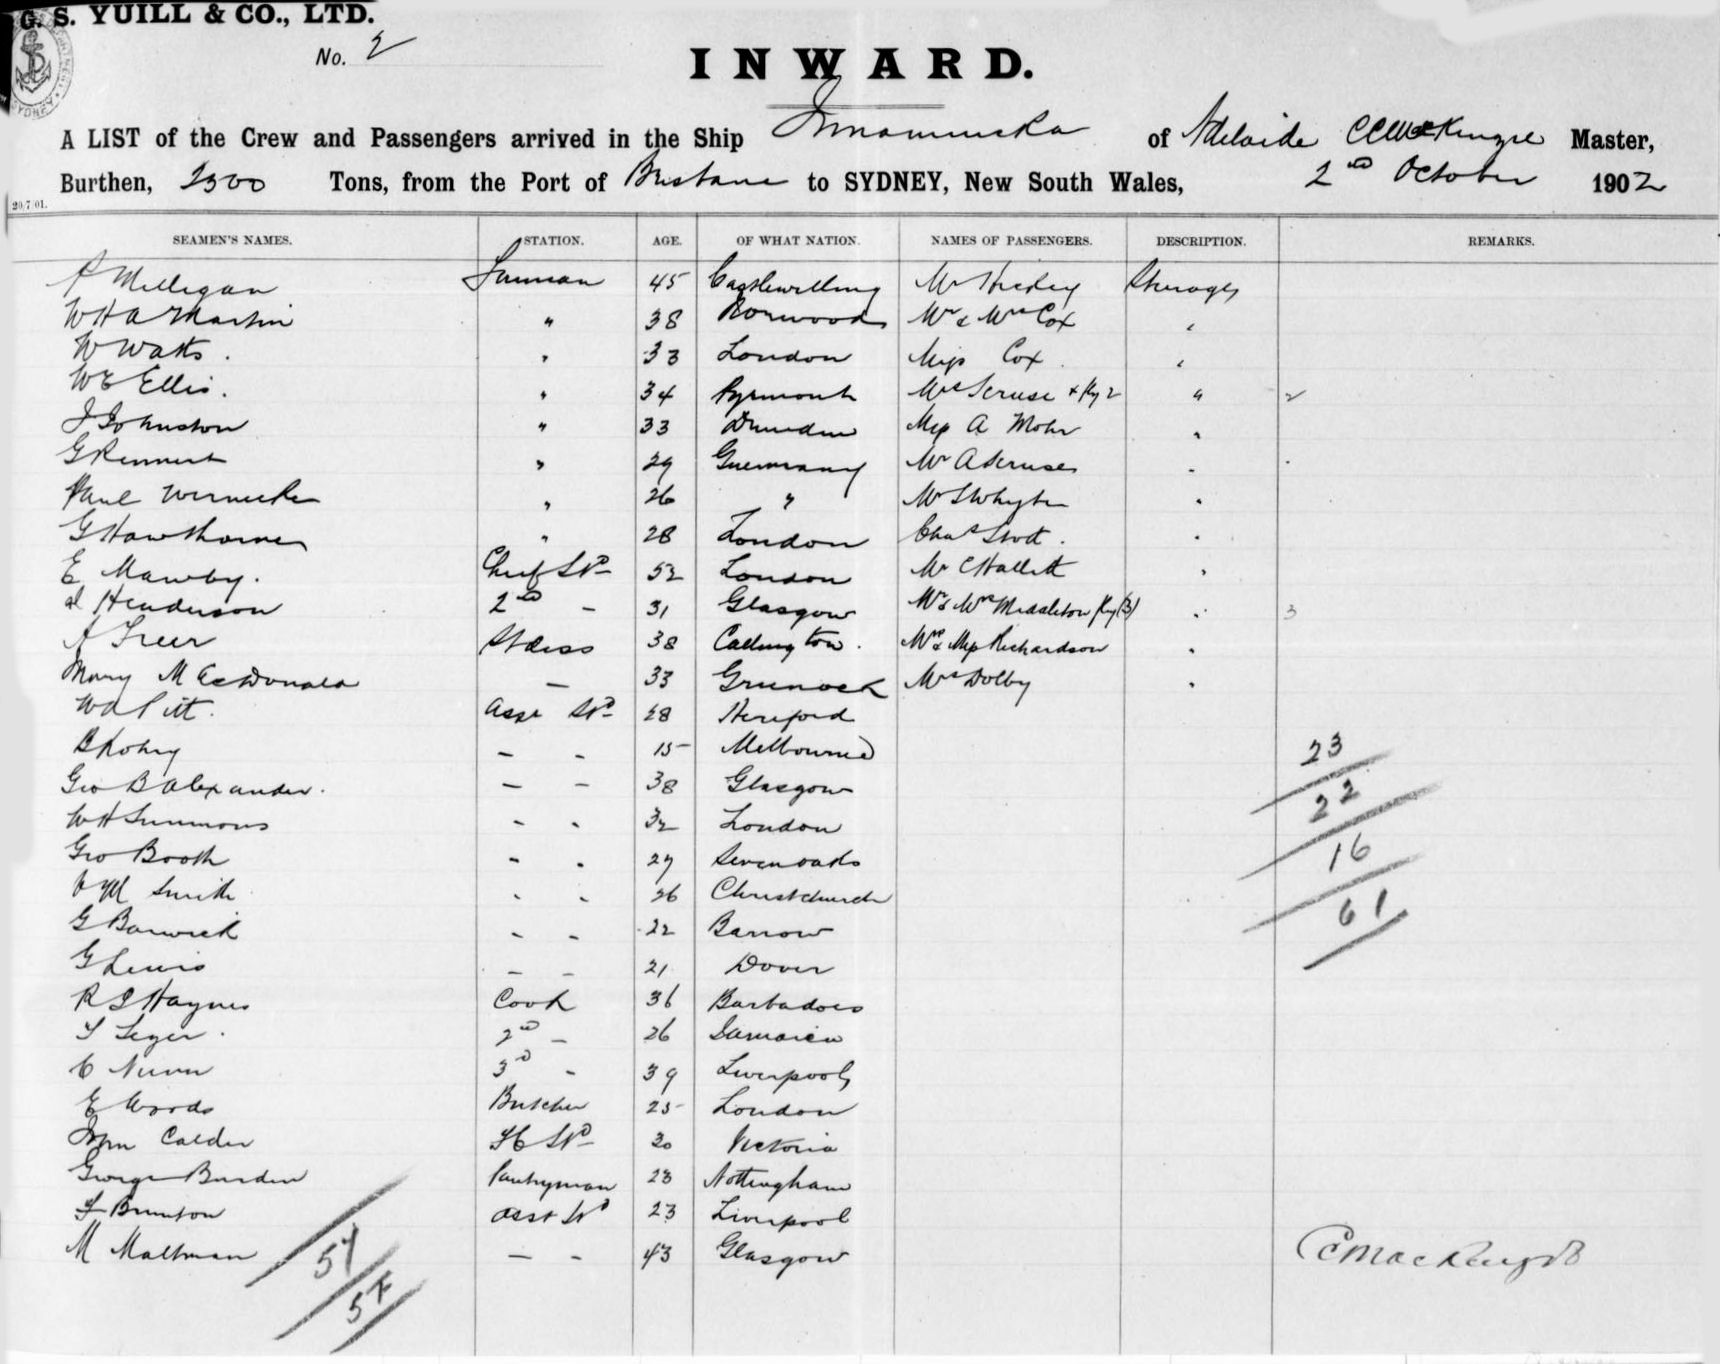 G. S. YUILL & CO., LTD.
No. 2
INWARD.
A LIST of the Crew and Passengers arrived in the Ship Innamincka of Adelaide Master,
Burthen, 2500 Tons, from the Port of Brisbane to SYDNEY, New South Wales, 2nd October 1902
20/7/01.
SEAMEN'S NAMES. STATION. AGE. OF WHAT NATION. NAMES OF PASSENGERS. DESCRIPTION. REMARKS.
Milligan 45 Mr Hickey Steerage
W H A Martin " 38 Mr & Mrs Cox
W Watts " 33 London Miss Cox
W E Ellis " 34 Pyrmont Mrs Scruse + fly 2 " 2
J Johnston " 33 Dunedin Miss A Mohr "
G Rennert " 29 Guermany Mr A Scruse "
Paul Wernicke " 26 " Mr S Whyte "
G Hawthorne " 28 London Chas Stott "
E Mawby. Chief Std 52 London Mr C Hallett "
Henderson 2nd - 31 Glasgow Mr & Mrs Middleton fly (3) " 3
A Greer Stdess 38 Callington Mrs & Miss Richardson "
Mary MacDonald - 33 Greenock Mrs Dolby "
Pitt. Asst Std 28 Hereford
- - 15 Melbourne 23
Geo B Alexander. - - 38 Glasgow 22
W H Simmons - - 32 London
Geo Booth - - 27 Sevenoaks 16
Smith - - 26 Christchurch
G Barwick - - 22 Barrow 61
G Lewis - - 21 Dover
R Haynes Cook 36 Barbadoes
2nd - 26 Jamaica
C Nunn 3rd - 39 Liverpool
E Woods Butcher 25 London
John Calder Std 30 Victoria
George Burden Pantryman 23 Nottingham
F Brunton Asst Std 23 Liverpool
M Maltman - - 43 Glasgow
57
57